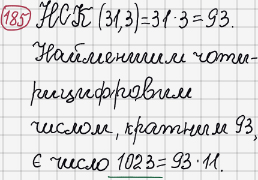 185 НСК (31,3)=31·3=93.
Найменшим чоти-
рицифровим
числом, кратним 93,
є число 1023=93·11.